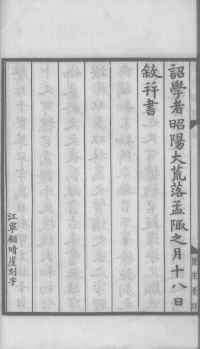 詔學者昭陽大荒落孟陬之月十八日
敘幷書
江寧顧晴崖刻字